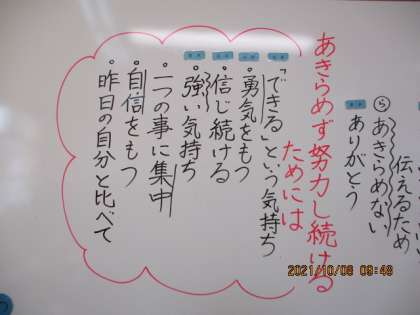 伝えるため
らあきらめない
ありがとう
あきらめず努力し続ける
ためには
・「できる」という気持ち
・勇気をもつ
・信じ続ける
・強い気持ち
・一つの事に集中
・自信をもつ
・昨日の自分と比べて
2021/10/08 09:48